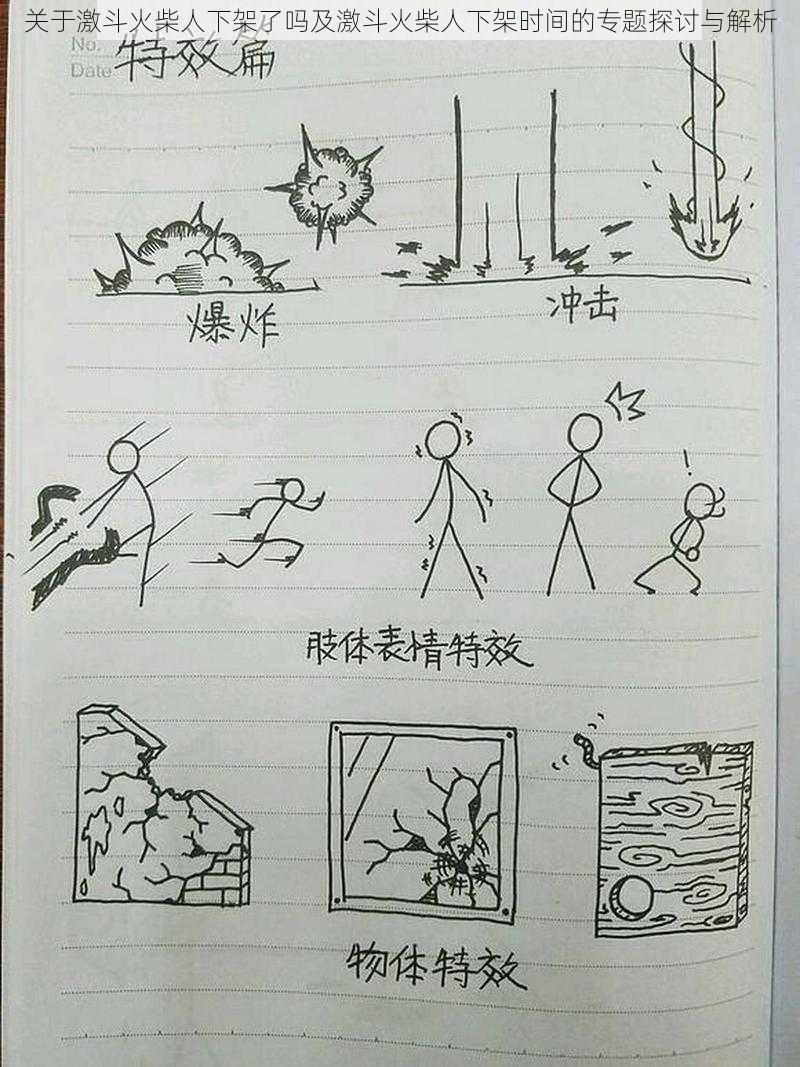 关于激斗火柴人下架了吗及激斗火柴人下架时间的专题探讨与解析
No.
Date
特效篇
爆炸
冲击
!
肢体表情特效
物体特效